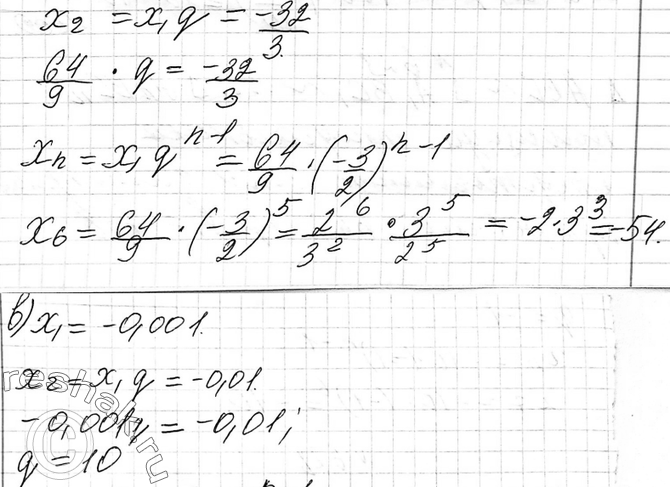 x₂ = x₁q = -32/3
64/9 · q = -32/3
xₙ = x₁qⁿ⁻¹ = 64/9 · (-3/2)ⁿ⁻¹
x₆ = 64/9 · (-3/2)⁵ = 2⁶/3² · 3⁵/2⁵ = -2·3³ = -54.
в) x₁ = -0,001.
x₂ = x₁q = -0,01.
-0,001q = -0,01;
q = 10